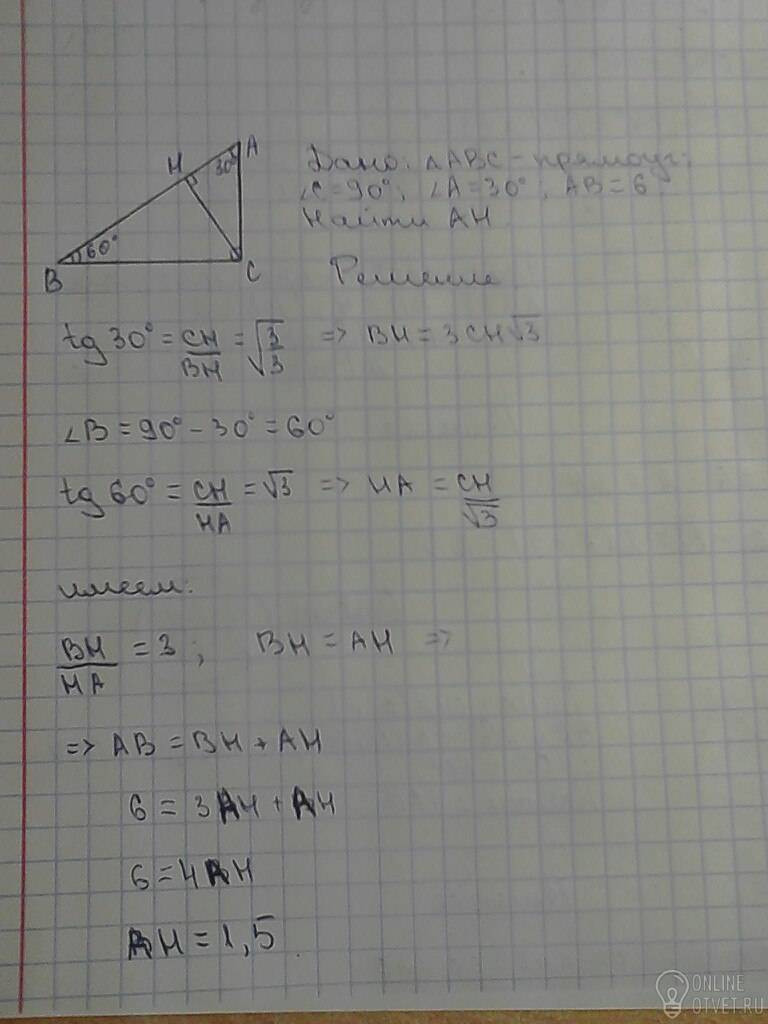 A
H
30°
60°
B
C
Дано: △ABC - прямоуг;
∠C = 90°; ∠A = 30°, AB = 6
Найти AH
Решение
tg 30° = CH/BH = √3/3 => BH = 3CH√3
∠B = 90° - 30° = 60°
tg 60° = CH/HA = √3 => HA = CH/√3
имеем:
BH/HA = 3; BH = AH =>
=> AB = BH + AH
6 = 3AH + AH
6 = 4AH
AH = 1,5
ONLINE
OTVET.RU